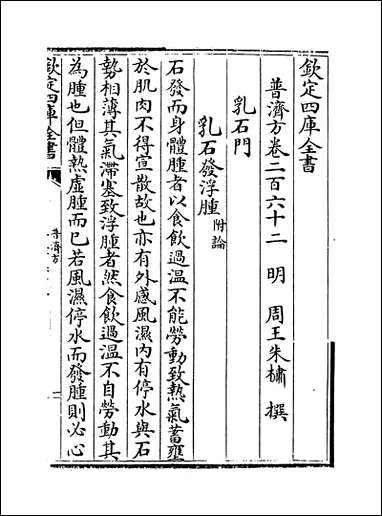 欽定四庫全書
普濟方卷二百六十二　明　周王朱橚　撰
乳石門
乳石發浮腫附論
石發而身體腫者以食飲過温不能勞動致熱氣蓄壅
於肌肉不得宣散故也亦有外感風濕内有停水與石
勢相薄其氣滯塞致浮腫者然食飲過温不自勞動其
為腫也但體熱虛腫而已若風濕停水而發腫則必心
欽定四庫全書
普濟方